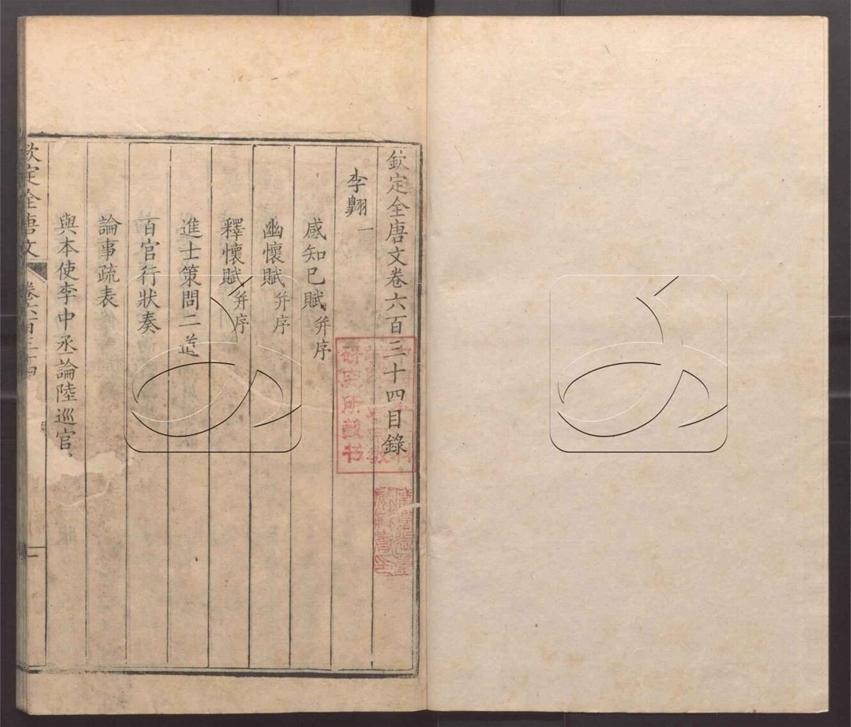 欽定全唐文卷六百三十四目錄
李翺一
感知己賦并序
幽懷賦并序
釋懷賦并序
進士策問二道
百官行狀奏
論事疏表
與本使李中丞論陸巡官
欽定全唐文 卷六百三十四